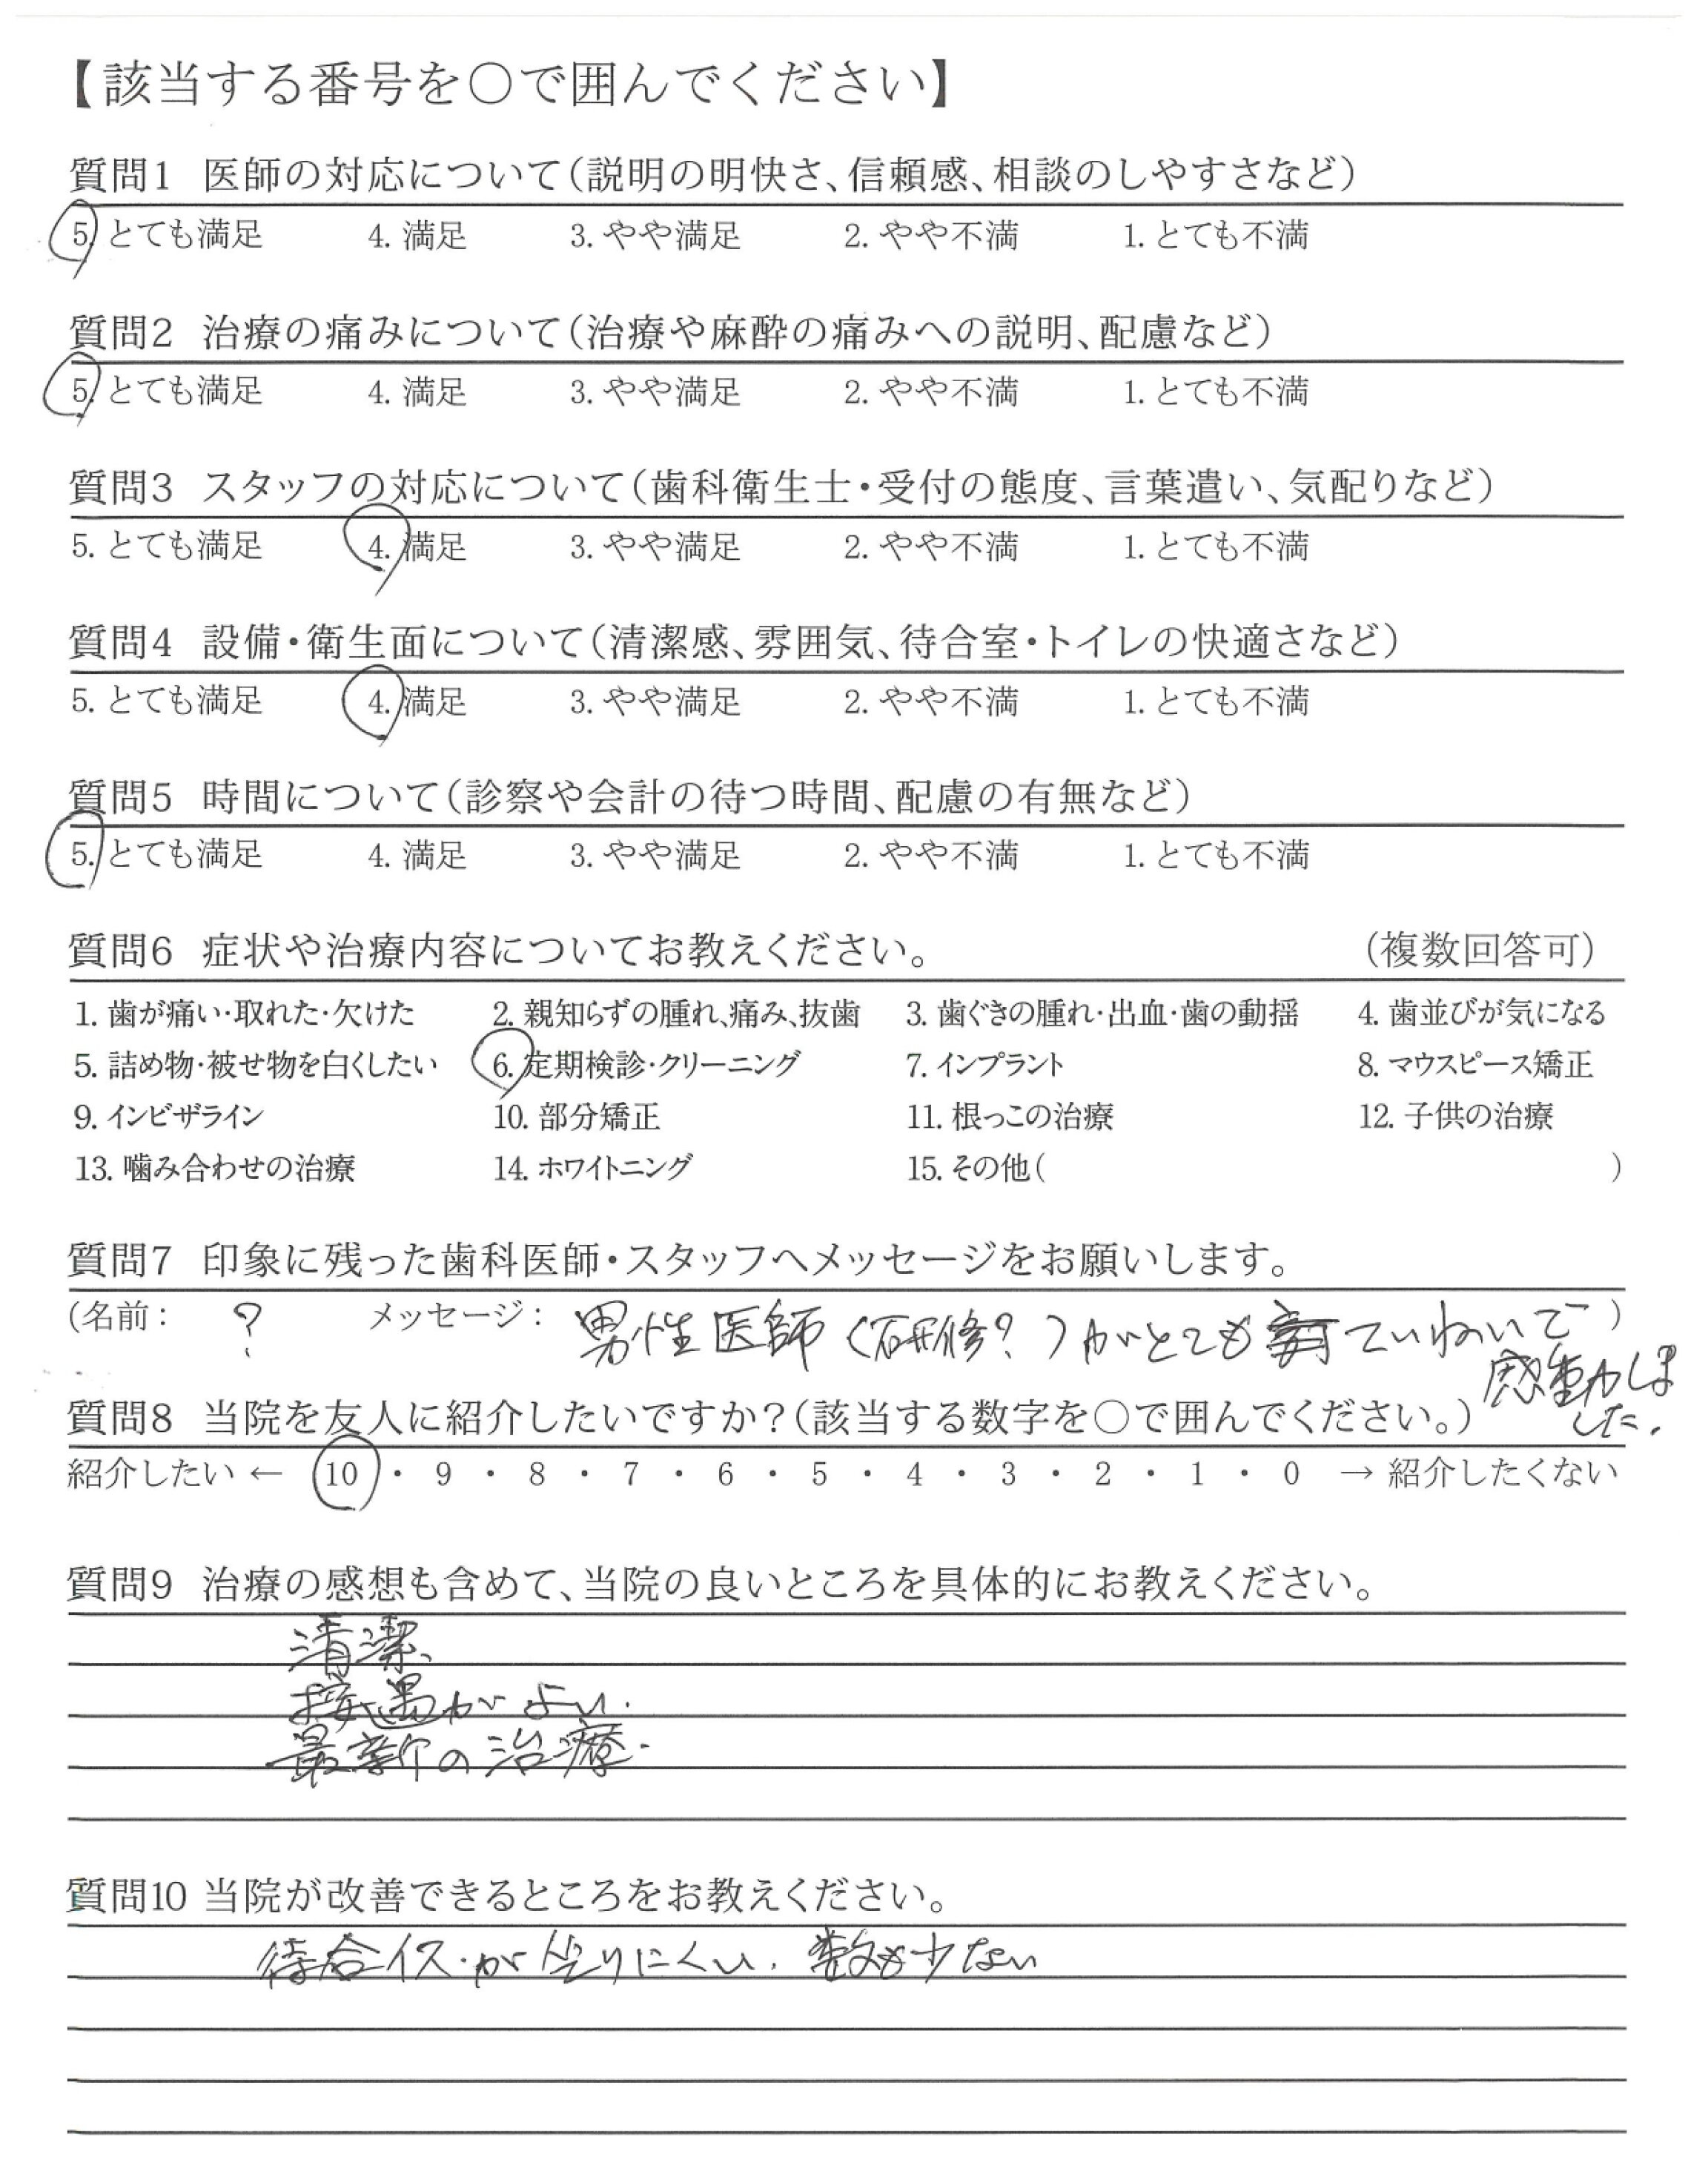 【該当する番号を○で囲んでください】
質問1 医師の対応について(説明の明快さ、信頼感、相談のしやすさなど)
5. とても満足 4. 満足 3. やや満足 2. やや不満 1. とても不満
質問2 治療の痛みについて(治療や麻酔の痛みへの説明、配慮など)
5. とても満足 4. 満足 3. やや満足 2. やや不満 1. とても不満
質問3 スタッフの対応について(歯科衛生士・受付の態度、言葉遣い、気配りなど)
5. とても満足 4. 満足 3. やや満足 2. やや不満 1. とても不満
質問4 設備・衛生面について(清潔感、雰囲気、待合室・トイレの快適さなど)
5. とても満足 4. 満足 3. やや満足 2. やや不満 1. とても不満
質問5 時間について(診察や会計の待つ時間、配慮の有無など)
5. とても満足 4. 満足 3. やや満足 2. やや不満 1. とても不満
質問6 症状や治療内容についてお教えください。 (複数回答可)
1. 歯が痛い・取れた・欠けた 2. 親知らずの腫れ、痛み、抜歯 3. 歯ぐきの腫れ・出血・歯の動揺 4. 歯並びが気になる
5. 詰め物・被せ物を白くしたい 6. 定期検診・クリーニング 7. インプラント 8. マウスピース矯正
9. インビザライン 10. 部分矯正 11. 根っこの治療 12. 子供の治療
13. 噛み合わせの治療 14. ホワイトニング 15. その他( )
質問7 印象に残った歯科医師・スタッフへメッセージをお願いします。
(名前: ? メッセージ: 男性医師(研修?)がとても ていねいで )
感動しま
した.
質問8 当院を友人に紹介したいですか?(該当する数字を○で囲んでください。)
紹介したい ← 10 ・ 9 ・ 8 ・ 7 ・ 6 ・ 5 ・ 4 ・ 3 ・ 2 ・ 1 ・ 0 → 紹介したくない
質問9 治療の感想も含めて、当院の良いところを具体的にお教えください。
清潔、
接遇がよい.
最新の治療.
質問10 当院が改善できるところをお教えください。
待合イス.が座りにくい. 数も少ない